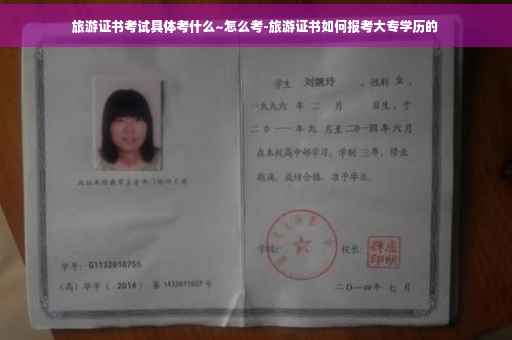 旅游证书考试具体考什么~怎么考-旅游证书如何报考大专学历的
学生 刘婉玲 ，性别 女 ，
一九九六 年 二 月 日生，于
二〇一一 年 九 月至 二〇一四 年 六 月
在本校高中部学习，学制 三 年，修业
期满，成绩合格，准予毕业。
学号： G1132010755
（高）毕字（ 2014 ）第 1432011007 号
学校：
校长：
二〇一四年 七 月